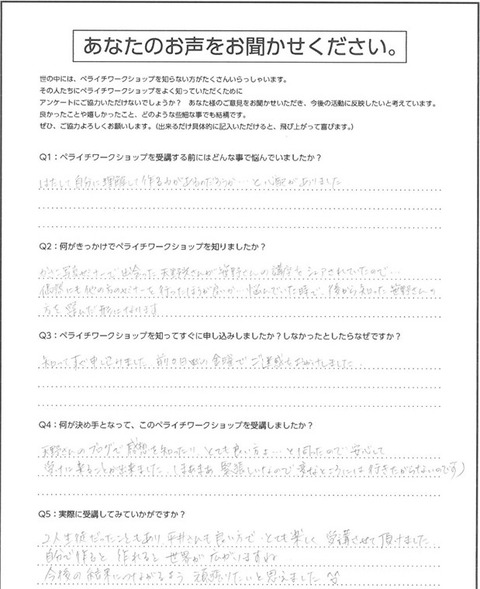 あなたのお声をお聞かせください。
世の中には、ペライチワークショップを知らない方がたくさんいらっしゃいます。
その人たちにペライチワークショップをよく知っていただくために
アンケートにご協力いただけないでしょうか？　あなた様のご意見をお聞かせいただき、今後の活動に反映したいと考えています。
良かったことや嬉しかったこと、どのような些細な事でも結構です。
ぜひ、ご協力よろしくお願いします。（出来るだけ具体的に記入いただけると、飛び上がって喜びます。）
Q1：ペライチワークショップを受講する前にはどんな事で悩んでいましたか？
はたして自分に理解して作る力があるのだろうか…と心配がありました
Q2：何がきっかけでペライチワークショップを知りましたか？
出会った 天野さんが 講座をシェアされていたので…
他の方のセミナーを行ったほうが良いか… 悩んでいた時で、後から知った
方を選んだ形になります
Q3：ペライチワークショップを知ってすぐに申し込みしましたか？しなかったとしたらなぜですか？
知ってすぐ申し込みました。前日 ご迷惑をおかけしました…
Q4：何が決め手となって、このペライチワークショップを受講しましたか？
天野さんのブログで感想を知ったり、とても良い方よ…と伺ったので 安心して
受けに来ることが出来ました（まあまあ 緊張しいなので 変なところには行きたがらないのです）
Q5：実際に受講してみていかがですか？
2人生徒だったこともあり 平井さんも良い方で とても楽しく 受講させて頂けました
自分で作ると 作れると 世界が広がりますね
今後の結果につながるよう 頑張りたいと思えました